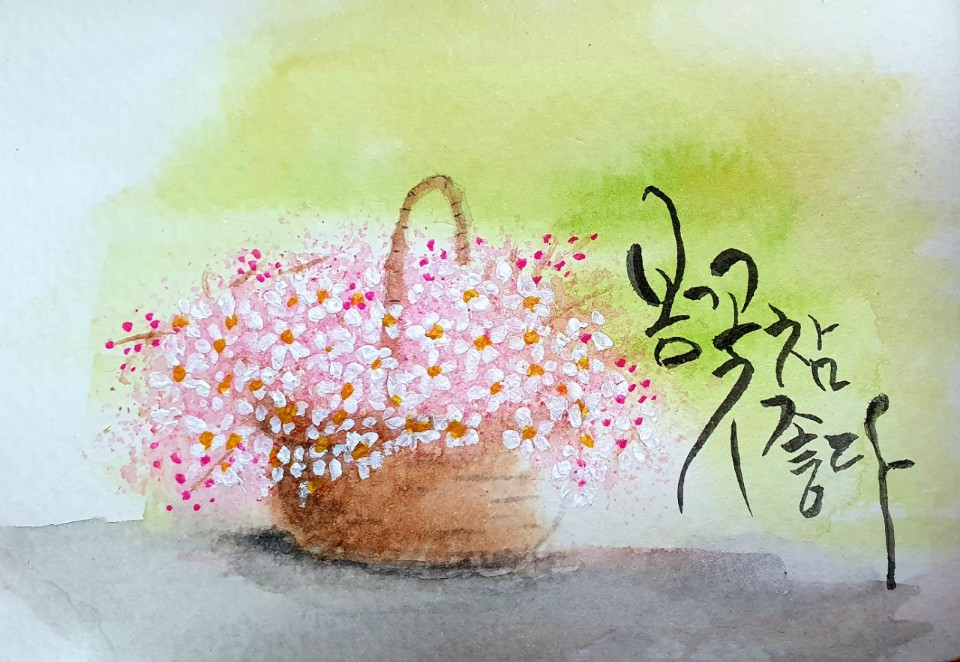 봄꽃 참
좋다